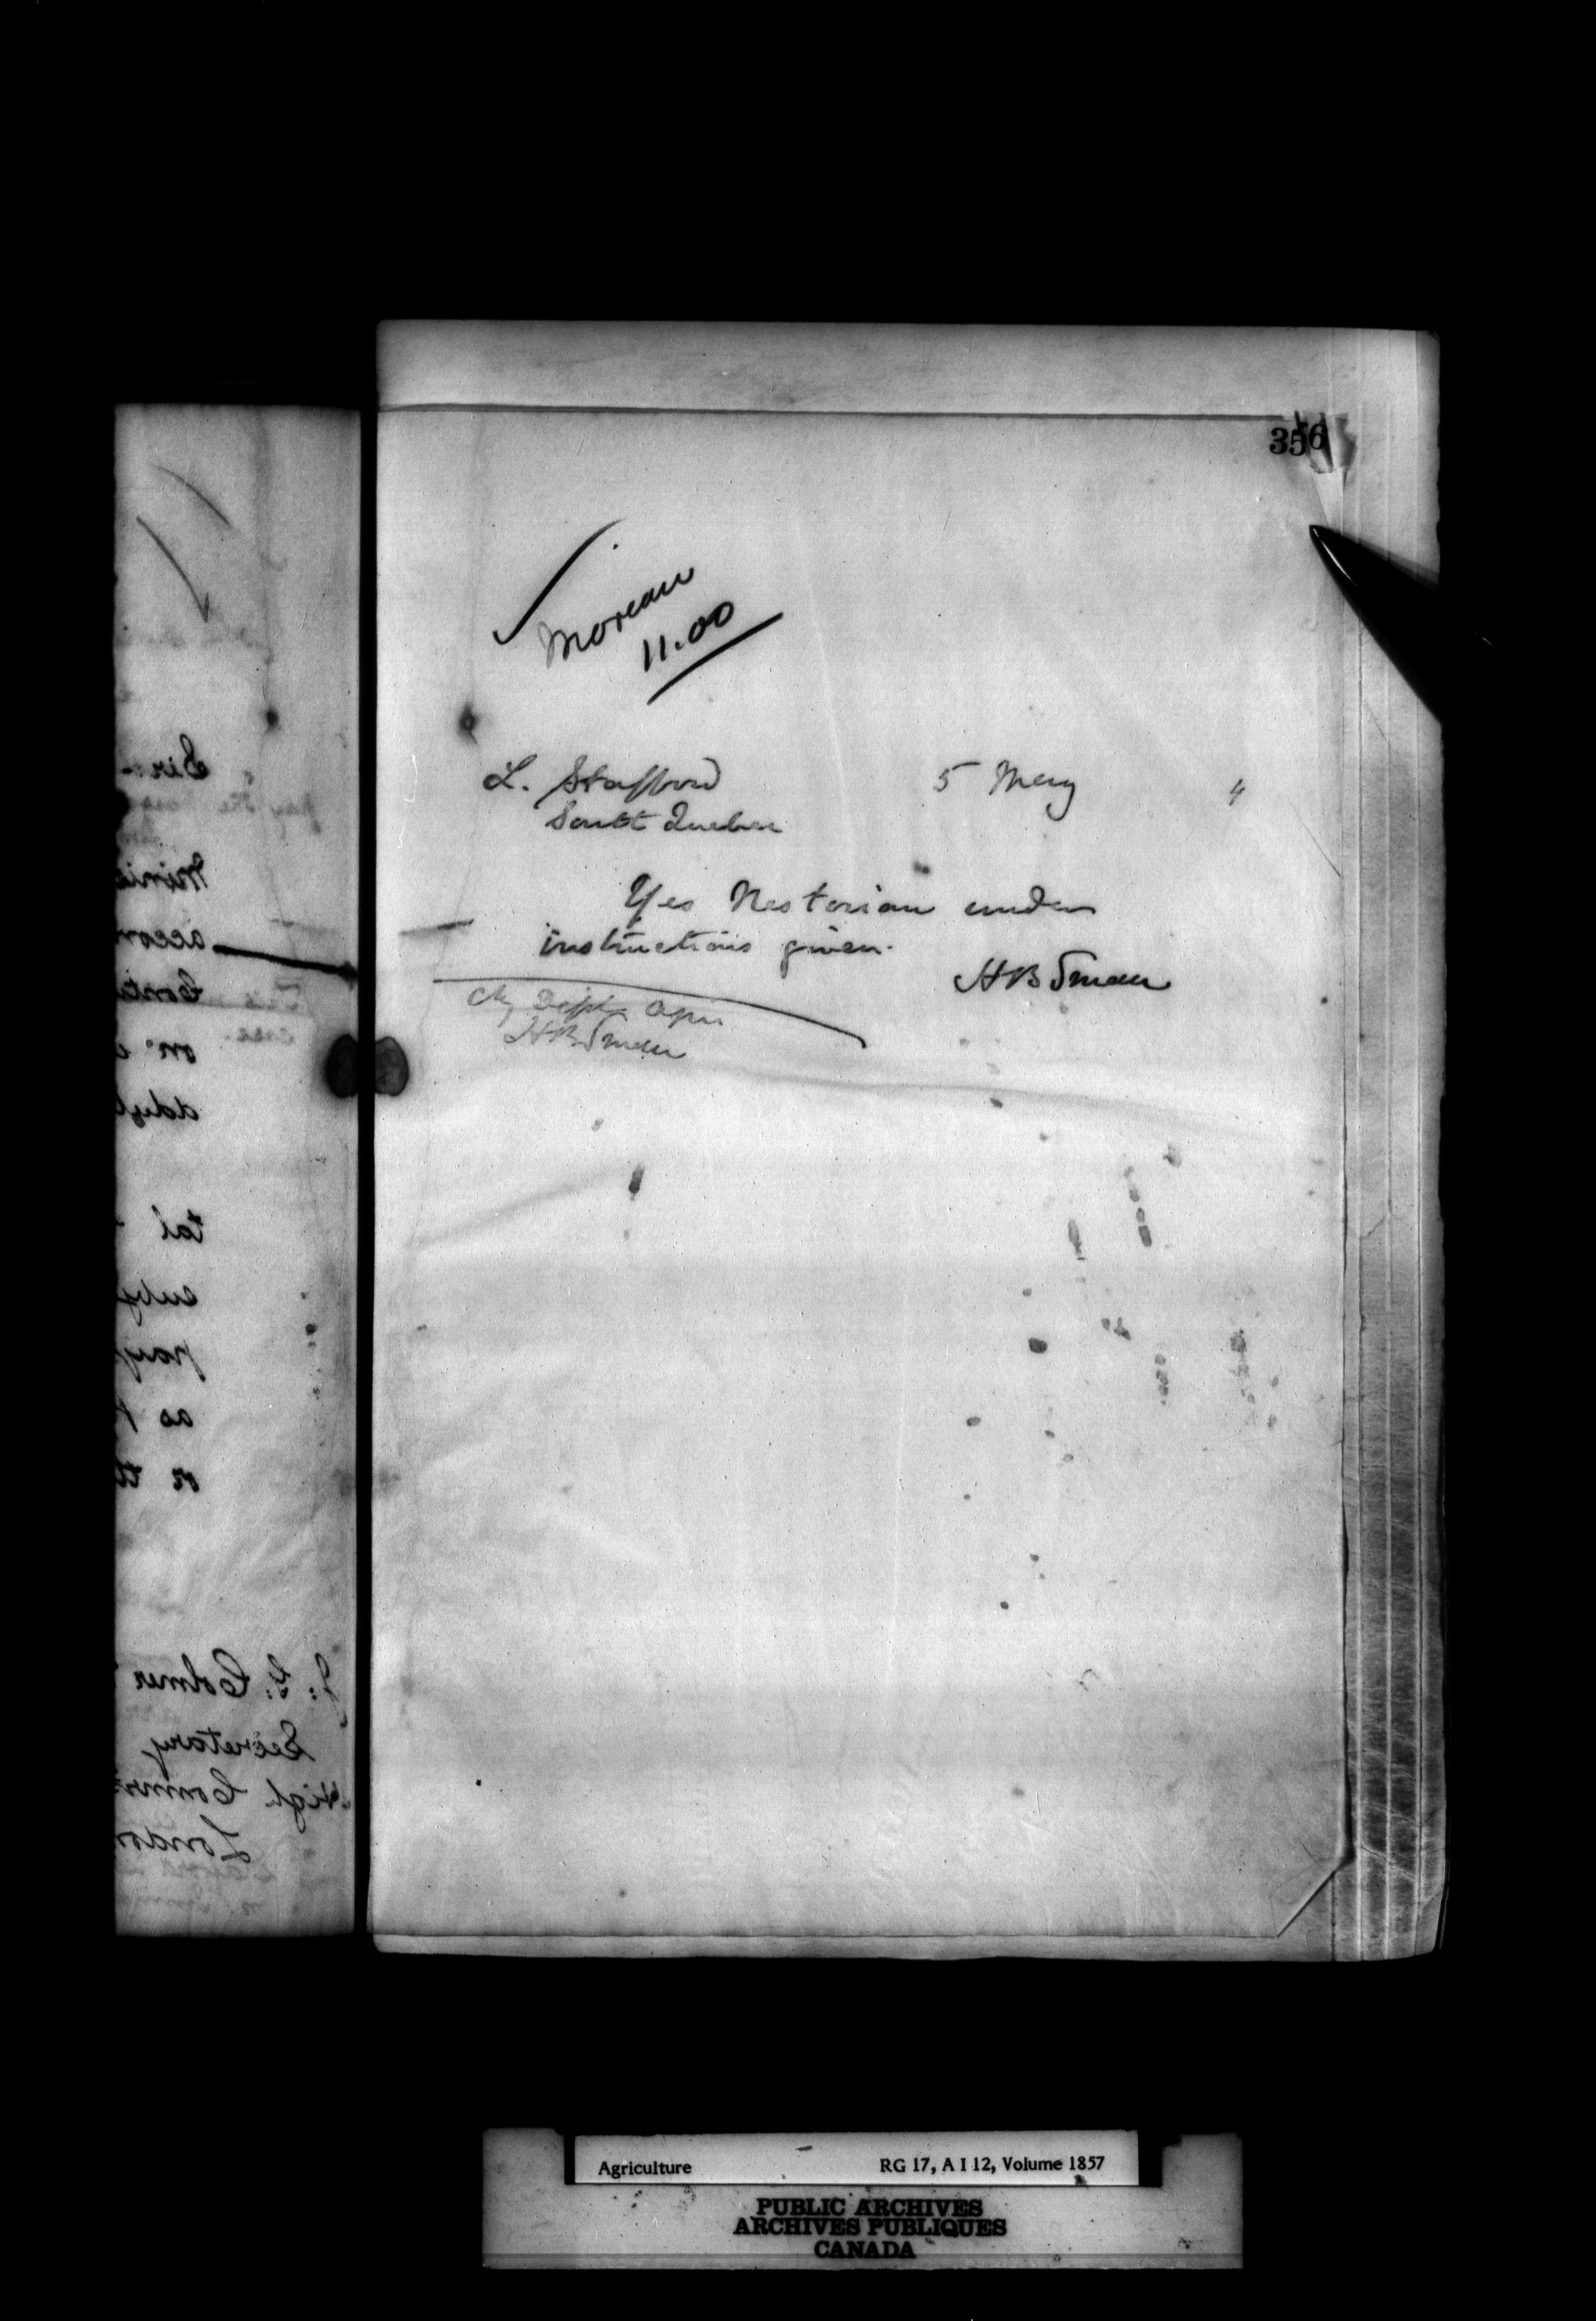 356
Moreau
11.00
L. Stafford 5 May 4
South Quebec
Yes Nestorian under
instructions given.
HB Small
Chg Dept Agri
HB Small
Sir
Minis
accom
Conti
on
ddy
tal
subj
pay
as
or th
J. G. Colmer
Secretary
High Commr
London
Agriculture RG 17, A I 12, Volume 1857
PUBLIC ARCHIVES
ARCHIVES PUBLIQUES
CANADA